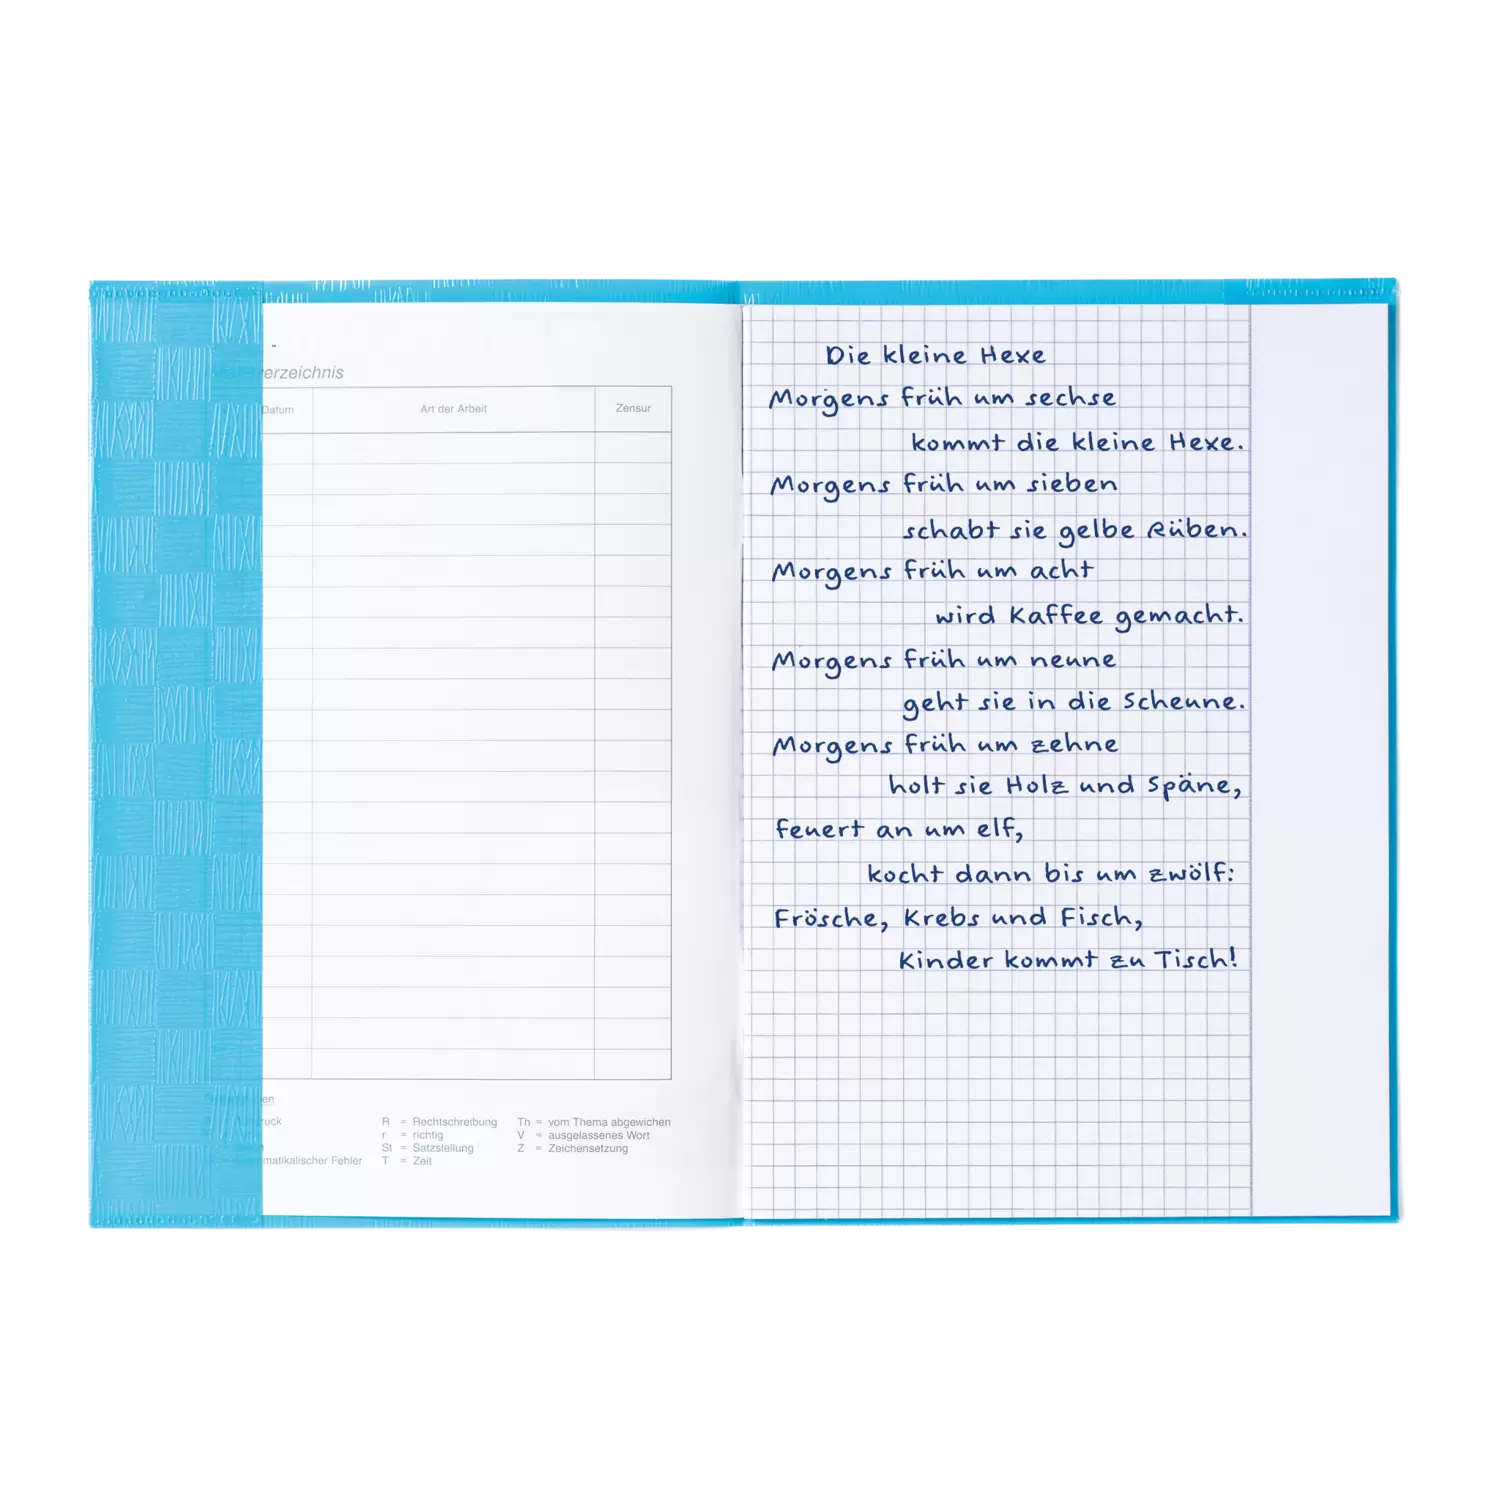 verzeichnis
Datum Art der Arbeit Zensur
R = Rechtschreibung Th = vom Thema abgewichen
r = richtig V = ausgelassenes Wort
St = Satzstellung Z = Zeichensetzung
matikalischer Fehler T = Zeit
Die kleine Hexe
Morgens früh um sechse
kommt die kleine Hexe.
Morgens früh um sieben
schabt sie gelbe Rüben.
Morgens früh um acht
wird Kaffee gemacht.
Morgens früh um neune
geht sie in die Scheune.
Morgens früh um zehne
holt sie Holz und Späne,
feuert an um elf,
kocht dann bis um zwölf:
Frösche, Krebs und Fisch,
Kinder kommt zu Tisch!